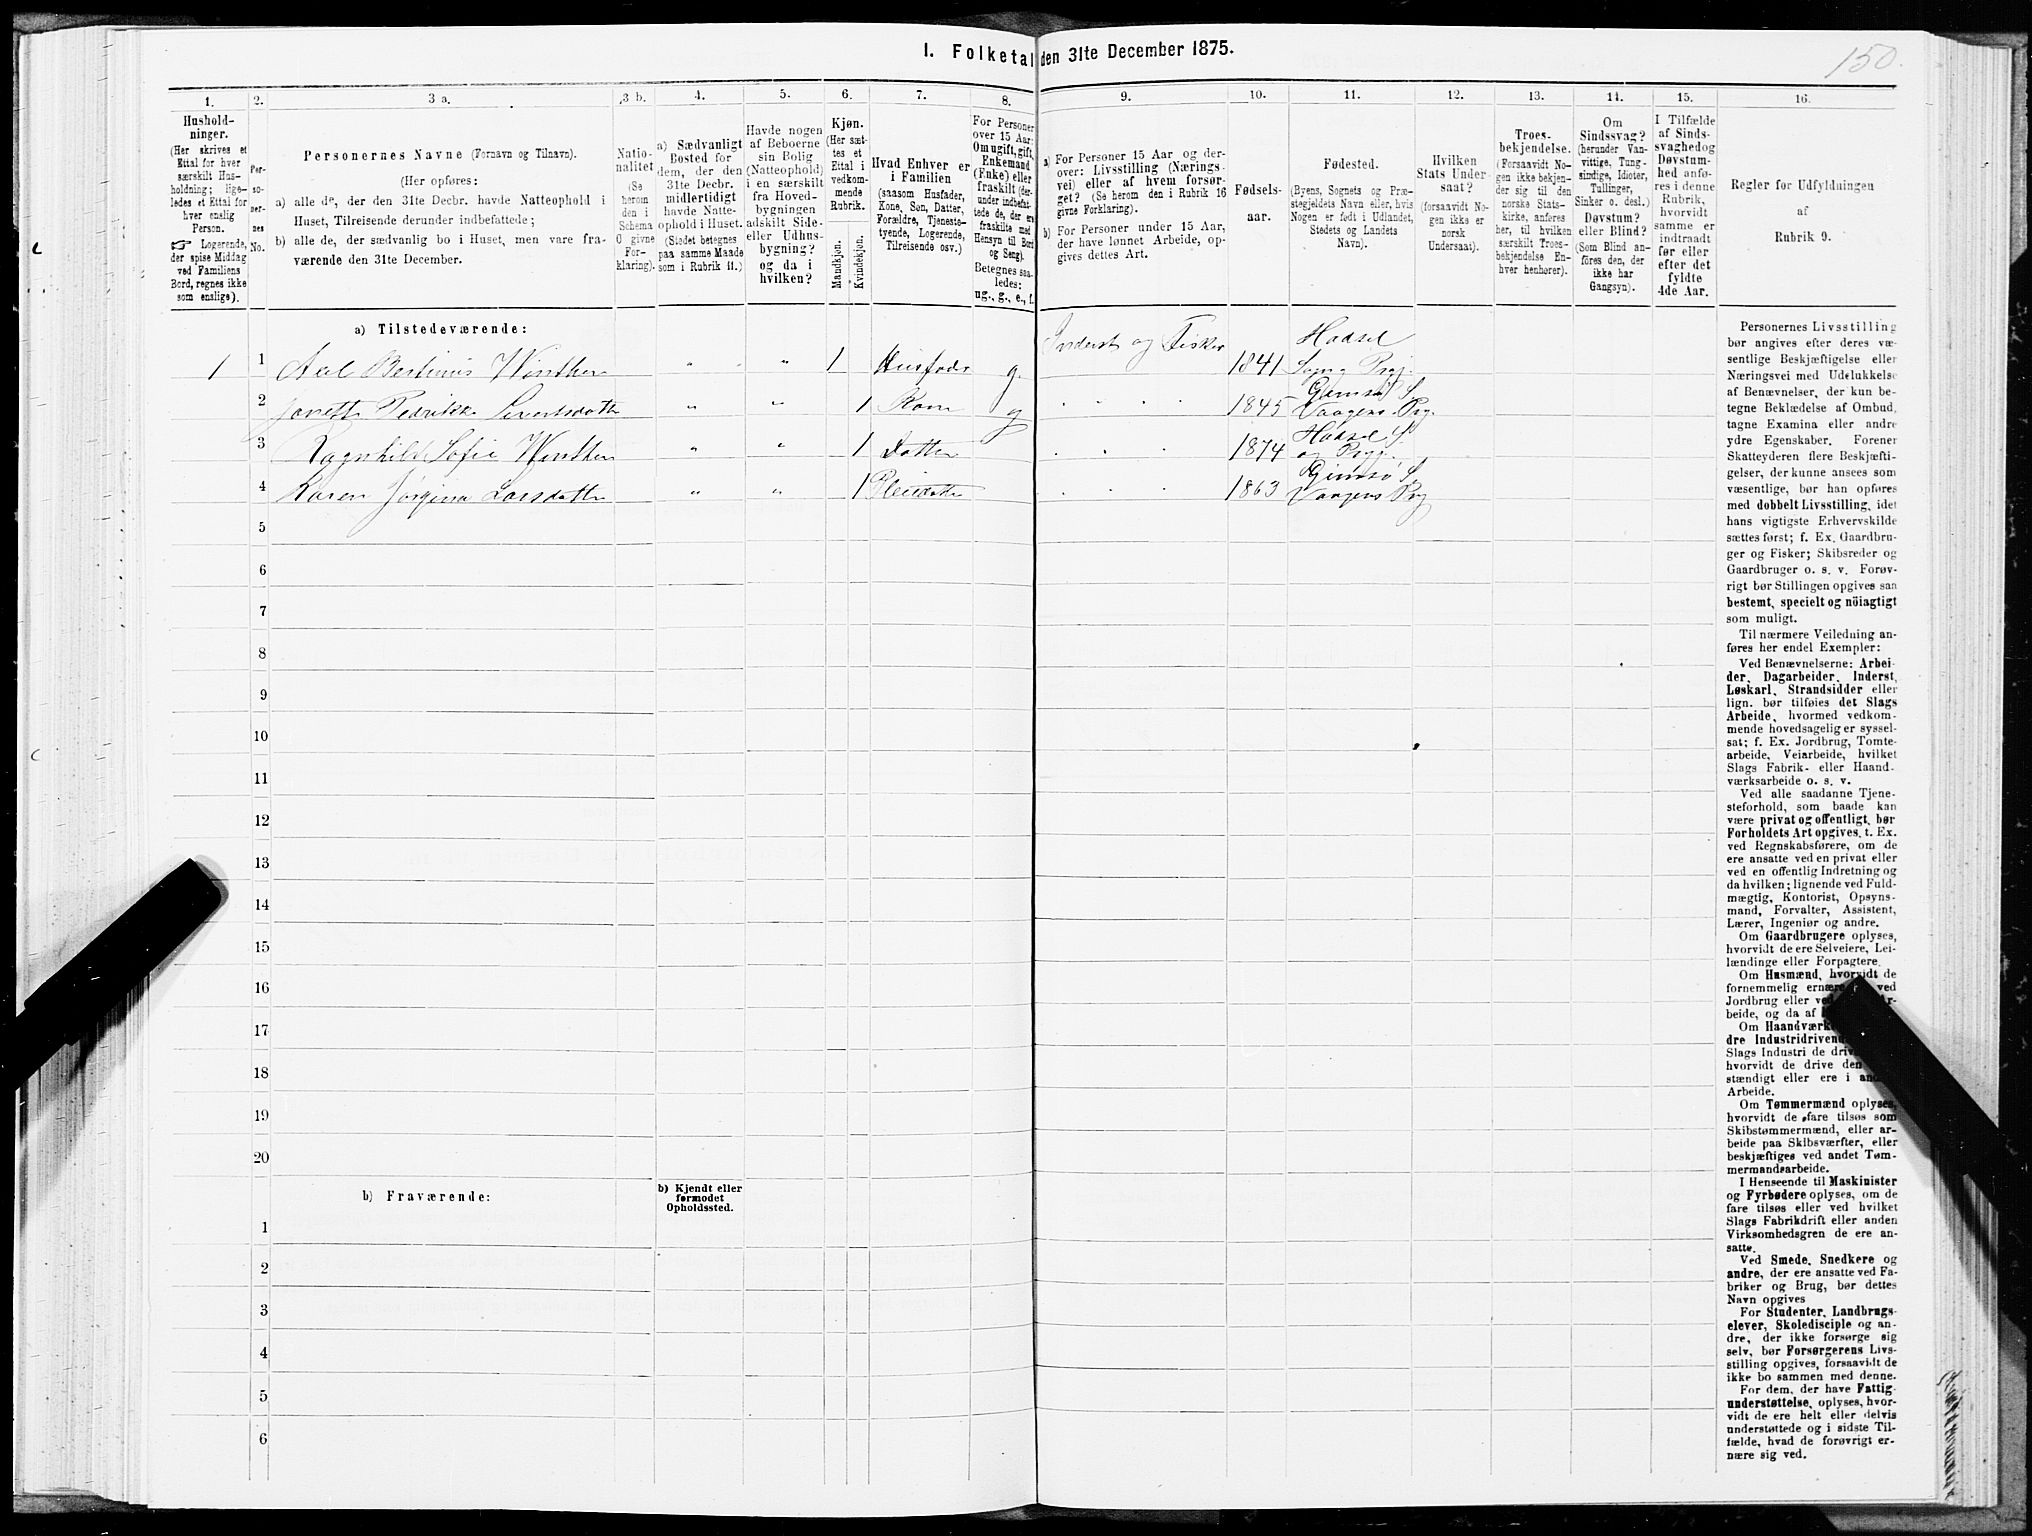 I. Folketal den 31te December 1875.
150.
1.
Hushold-
ninger.
(Her skrives et
Ettal for hver
særskilt Hus-
holdning; lige-
ledes et Ettal for
hver enslig
Person.
☞ Logerende,
der spise Middag
ved Familiens
Bord, regnes ikke
som enslige).
2.
Per-
so-
ner-
nes
No.
3 a.
Personernes Navne (Fornavn og Tilnavn).
(Her opføres:
a) alle de, der den 31te Decbr. havde Natteophold i
Huset, Tilreisende derunder indbefattede;
b) alle de, der sædvanlig bo i Huset, men vare fra-
værende den 31te December.
3 b.
Natio-
nalitet
(Se
herom
den i
Schema
O givne
For-
klaring).
4.
a) Sædvanligt
Bosted for
dem, der den
31te Decbr.
midlertidigt
havde Natte-
ophold i Huset.
(Stedet betegnes
paa samme Maade
som i Rubrik 11.)
5.
Havde nogen
af Beboerne
sin Bolig
(Natteophold)
i en særskilt
fra Hoved-
bygningen
adskilt Side-
eller Udhus-
bygning?
og da i
hvilken?
6.
Kjøn.
(Her sæt-
tes et
Ettal i
vedkom-
mende
Rubrik.
Mandkjøn.
Kvindekjøn.
7.
Hvad Enhver er
i Familien
(saasom Husfader,
Kone, Søn, Datter,
Forældre, Tjeneste-
tyende, Logerende,
Tilreisende osv.)
8.
For Personer
over 15 Aar:
Om ugift, gift,
Enkemand
(Enke) eller
fraskilt (der-
under indbefat-
tede de, der ere
fraskilte med
Hensyn til Bord
og Seng).
Betegnes saa-
ledes:
ug., g., e., f.
9.
a) For Personer 15 Aar og der-
over: Livsstilling (Nærings-
vei) eller af hvem forsør-
get? (Se herom den i Rubrik 16
givne Forklaring).
b) For Personer under 15 Aar,
der have lønnet Arbeide, op-
gives dettes Art.
10.
Fødsels-
aar.
11.
Fødested.
(Byens, Sognets og Præ-
stegjeldets Navn eller, hvis
Nogen er født i Udlandet,
Stedets og Landets
Navn).
12.
Hvilken
Stats Under-
saat?
(forsaavidt No-
gen ikke er
norsk
Undersaat).
13.
Troes-
bekjendelse.
(Forsaavidt No-
gen ikke bekjen-
der sig til den
norske Stats-
kirke, anføres
her, til hvilken
særskilt Troes-
bekjendelse En-
hver henhører).
14.
Om
Sindssvag?
(herunder Van-
vittige, Tung-
sindige, Idioter,
Tullinger,
Sinker o. desl.)
Døvstum?
eller Blind?
(Som Blind an-
føres den, der
ikke har
Gangsyn).
15.
I Tilfælde
af Sinds-
svaghed og
Døvstum-
hed anfø-
res i denne
Rubrik,
hvorvidt
samme er
indtraadt
før eller
efter det
fyldte
4de Aar.
16.
Regler for Udfyldningen
af
Rubrik 9.
a) Tilstedeværende:
1 1 Axel Bertinus Winther " " " 1 Husfader g. Inderst og Fisker 1841 Hadsel
Sogn og Prgj.
2 Janette Pedrikke Sivertsdatter " " 1 Kone g 1845 Gimsø S.
Vaagens Prg.
3 Ragnhild Sofie Winther " " 1 Datter 1874 Hadsel S.
og Prgj.
4 Karen Jørgina Larsdatter " " 1 Pleiedatter 1863 Gimsø S.
Vaagens Prg
5
6
7
8
9
10
11
12
13
14
15
16
17
18
19
20
b) Fraværende:
b) Kjendt eller
formodet
Opholdssted.
1
2
3
4
5
6
Personernes Livsstilling
bør angives efter deres væ-
sentlige Beskjæftigelse eller
Næringsvei med Udelukkelse
af Benævnelser, der kun be-
tegne Beklædelse af Ombud,
tagne Examina eller andre
ydre Egenskaber. Forener
Skatteyderen flere Beskjæfti-
gelser, der kunne ansees som
væsentlige, bør han opføres
med dobbelt Livsstilling, idet
hans vigtigste Erhvervskilde
sættes først; f. Ex. Gaardbru-
ger og Fisker; Skibsreder og
Gaardbruger o. s. v. Forøv-
rigt bør Stillingen opgives saa
bestemt, specielt og nöiagtigt
som muligt.
Til nærmere Veiledning an-
føres her endel Exempler:
Ved Benævnelserne: Arbei-
der, Dagarbeider, Inderst,
Løskarl, Strandsidder eller
lign. bør tilføies det Slags
Arbeide, hvormed vedkom-
mende hovedsagelig er syssel-
sat; f. Ex. Jordbrug, Tomte-
arbeide, Veiarbeide, hvilket
Slags Fabrik- eller Haand-
værksarbeide o. s. v.
Ved alle saadanne Tjene-
steforhold, som baade kan
være privat og offentligt, bør
Forholdets Art opgives, t. Ex.
ved Regnskabsførere, om de
ere ansatte ved en privat eller
ved en offentlig Indretning og
da hvilken; lignende ved Fuld-
mægtig, Kontorist, Opsyns-
mand, Forvalter, Assistent,
Lærer, Ingeniør og andre.
Om Gaardbrugere oplyses,
hvorvidt de ere Selveiere, Lei-
lændinge eller Forpagtere.
Om Husmænd, hvorvidt de
fornemmelig ernære ved
Jordbrug eller ved Ar-
beide, og da af
Om Haandværk
dre Industridrivend
Slags Industri de driv
hvorvidt de drive den
stændigt eller ere i andres
Arbeide.
Om Tømmermænd oplyses,
hvorvidt de fare tilsøs som
Skibstømmermænd, eller ar-
beide paa Skibsværfter, eller
beskjæftiges ved andet Tøm-
mermandsarbeide.
I Henseende til Maskinister
og Fyrbødere oplyses, om de
fare tilsøs eller ved hvilket
Slags Fabrikdrift eller anden
Virksomhedsgren de ere an-
satte.
Ved Smede, Snedkere og
andre, der ere ansatte ved Fa-
briker og Brug, bør dettes
Navn opgives
For Studenter, Landbrugs-
elever, Skoledisciple og an-
dre, der ikke forsørge sig
selv, bør Forsørgerens Livs-
stilling opgives, forsaavidt de
ikke bo sammen med denne.
For dem, der have Fattig-
understøttelse, oplyses, hvor-
vidt de ere helt eller delvis
understøttede og i sidste Til-
fælde, hvad de forøvrigt er-
nære sig ved.